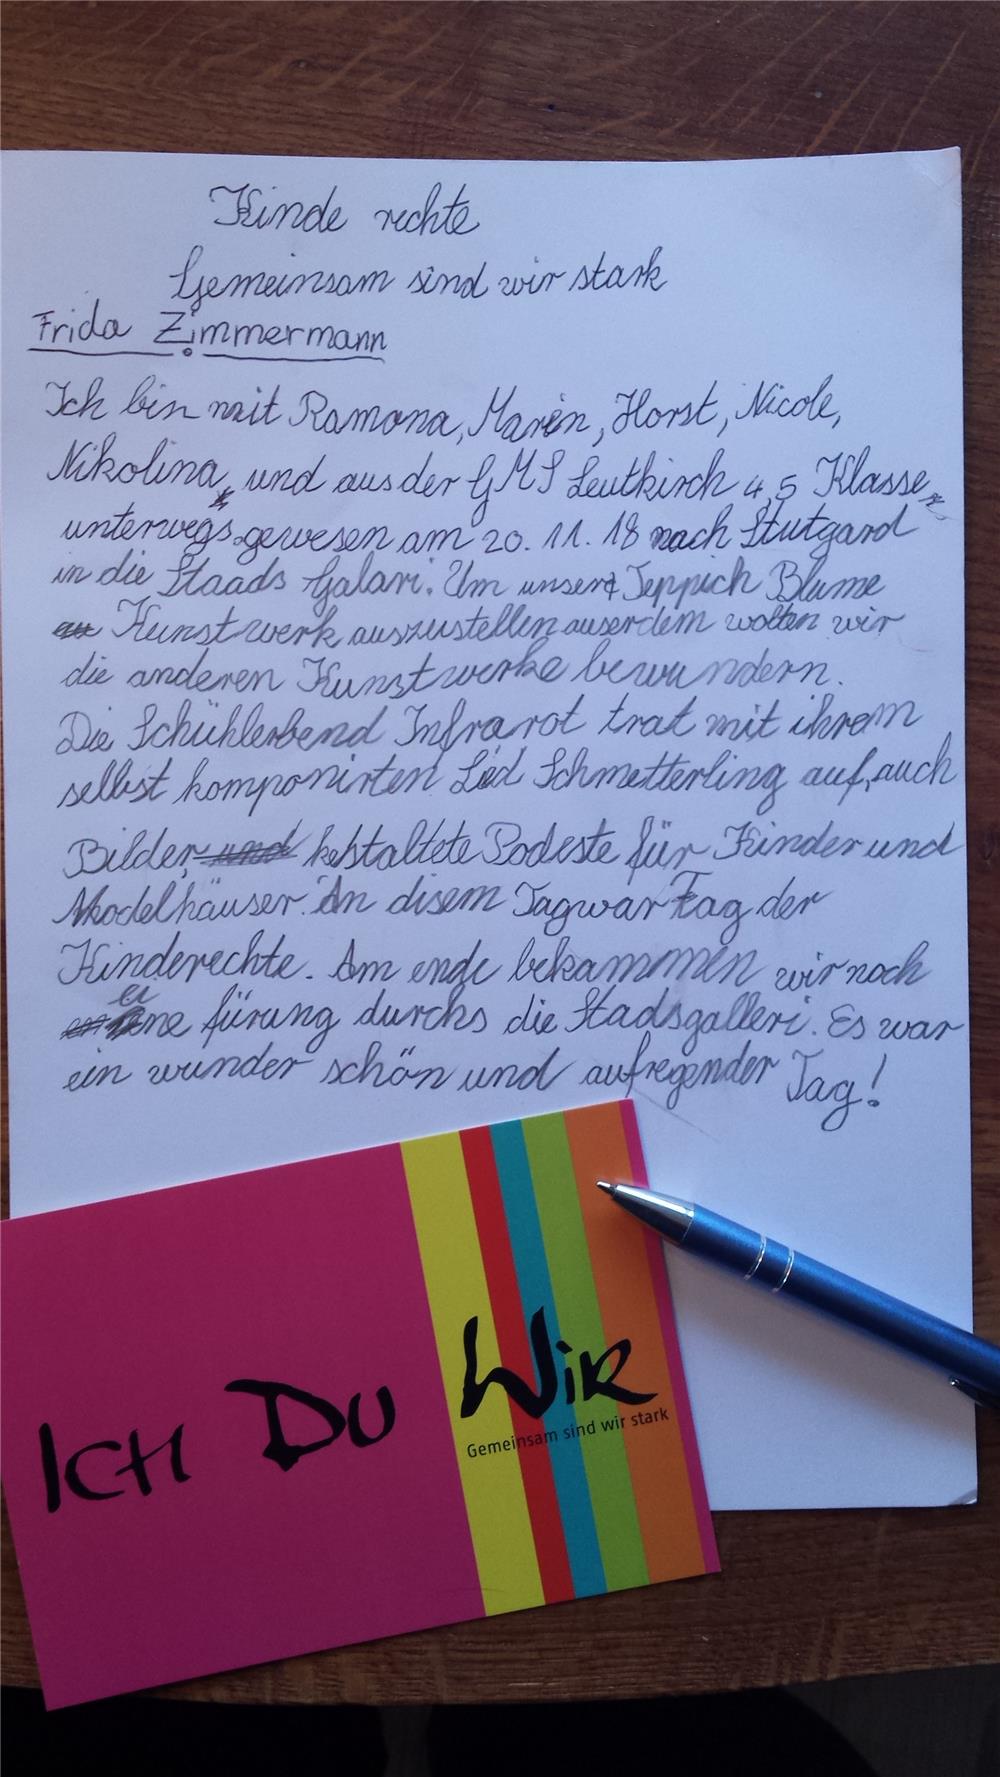 Kinde rechte
Gemeinsam sind wir stark
Frida Zimmermann
Ich bin mit Ramona, Maren, Horst, Nicole,
Nikolina, und aus der GMS Leutkirch 4,5 Klasse,
unterwegs gewesen am 20. 11. 18 nach Stutgard
in die Staads Galari. Um unsere Teppich Blume
Kunstwerk auszustellen auserdem wolten wir
die anderen Kunstwerke bewundern.
Die Schühlerbend Infrarot trat mit ihrem
selbst komponirten Lied Schmetterling auf, auch
Bilder, kehstaltete Podeste für Kinder und
Modelhäuser. An disem Tag war Tag der
Kinderechte. Am ende bekammen wir noch
eine fürung durchs die Stadsgalleri. Es war
ein wunder schön und aufregender Tag!
ICH DU WIR
Gemeinsam sind wir stark